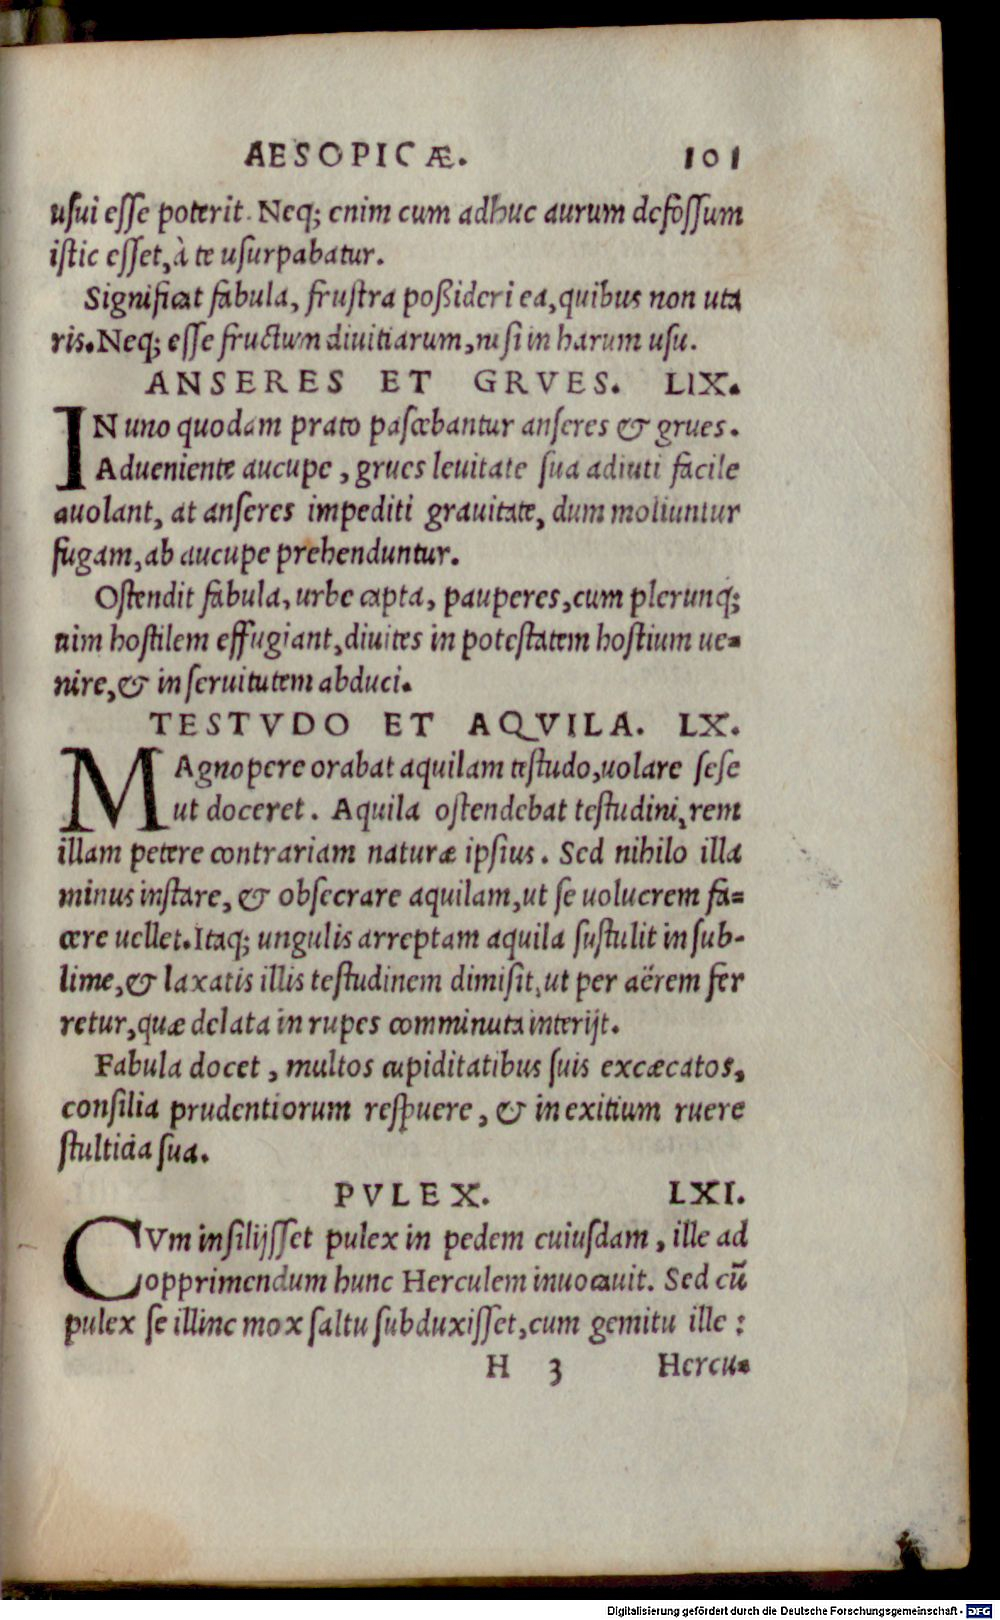 AESOPICÆ. 101
usui esse poterit. Neq; enim cum adhuc aurum defossum
istic esset, à te usurpabatur.
Significat fabula, frustra poßideri ea, quibus non uta
ris. Neq; esse fructum diuitiarum, nisi in harum usu.
ANSERES ET GRVES. LIX.
IN uno quodam prato pascebantur anseres & grues.
Adueniente aucupe, grues leuitate sua adiuti facile
auolant, at anseres impediti grauitate, dum moliuntur
fugam, ab aucupe prehenduntur.
Ostendit fabula, urbe capta, pauperes, cum plerunq;
uim hostilem effugiant, diuites in potestatem hostium ue=
nire, & in seruitutem abduci.
TESTVDO ET AQVILA. LX.
MAgnopere orabat aquilam testudo, uolare sese
ut doceret. Aquila ostendebat testudini, rem
illam petere contrariam naturæ ipsius. Sed nihilo illa
minus instare, & obsecrare aquilam, ut se uolucrem fa=
cere uellet. Itaq; ungulis arreptam aquila sustulit in sub-
lime, & laxatis illis testudinem dimisit, ut per aërem fer
retur, quæ delata in rupes comminuta interijt.
Fabula docet, multos cupiditatibus suis excæcatos,
consilia prudentiorum respuere, & in exitium ruere
stulticia sua.
PVLEX. LXI.
CVm insilijsset pulex in pedem cuiusdam, ille ad
opprimendum hunc Herculem inuocauit. Sed cũ
pulex se illinc mox saltu subduxisset, cum gemitu ille :
H 3 Hercu=
Digitalisierung gefördert durch die Deutsche Forschungsgemeinschaft - DFG